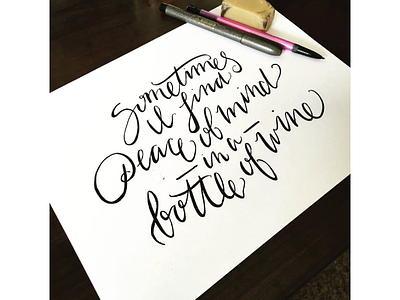 Sometimes
I find
peace of mind
- in a -
bottle of wine